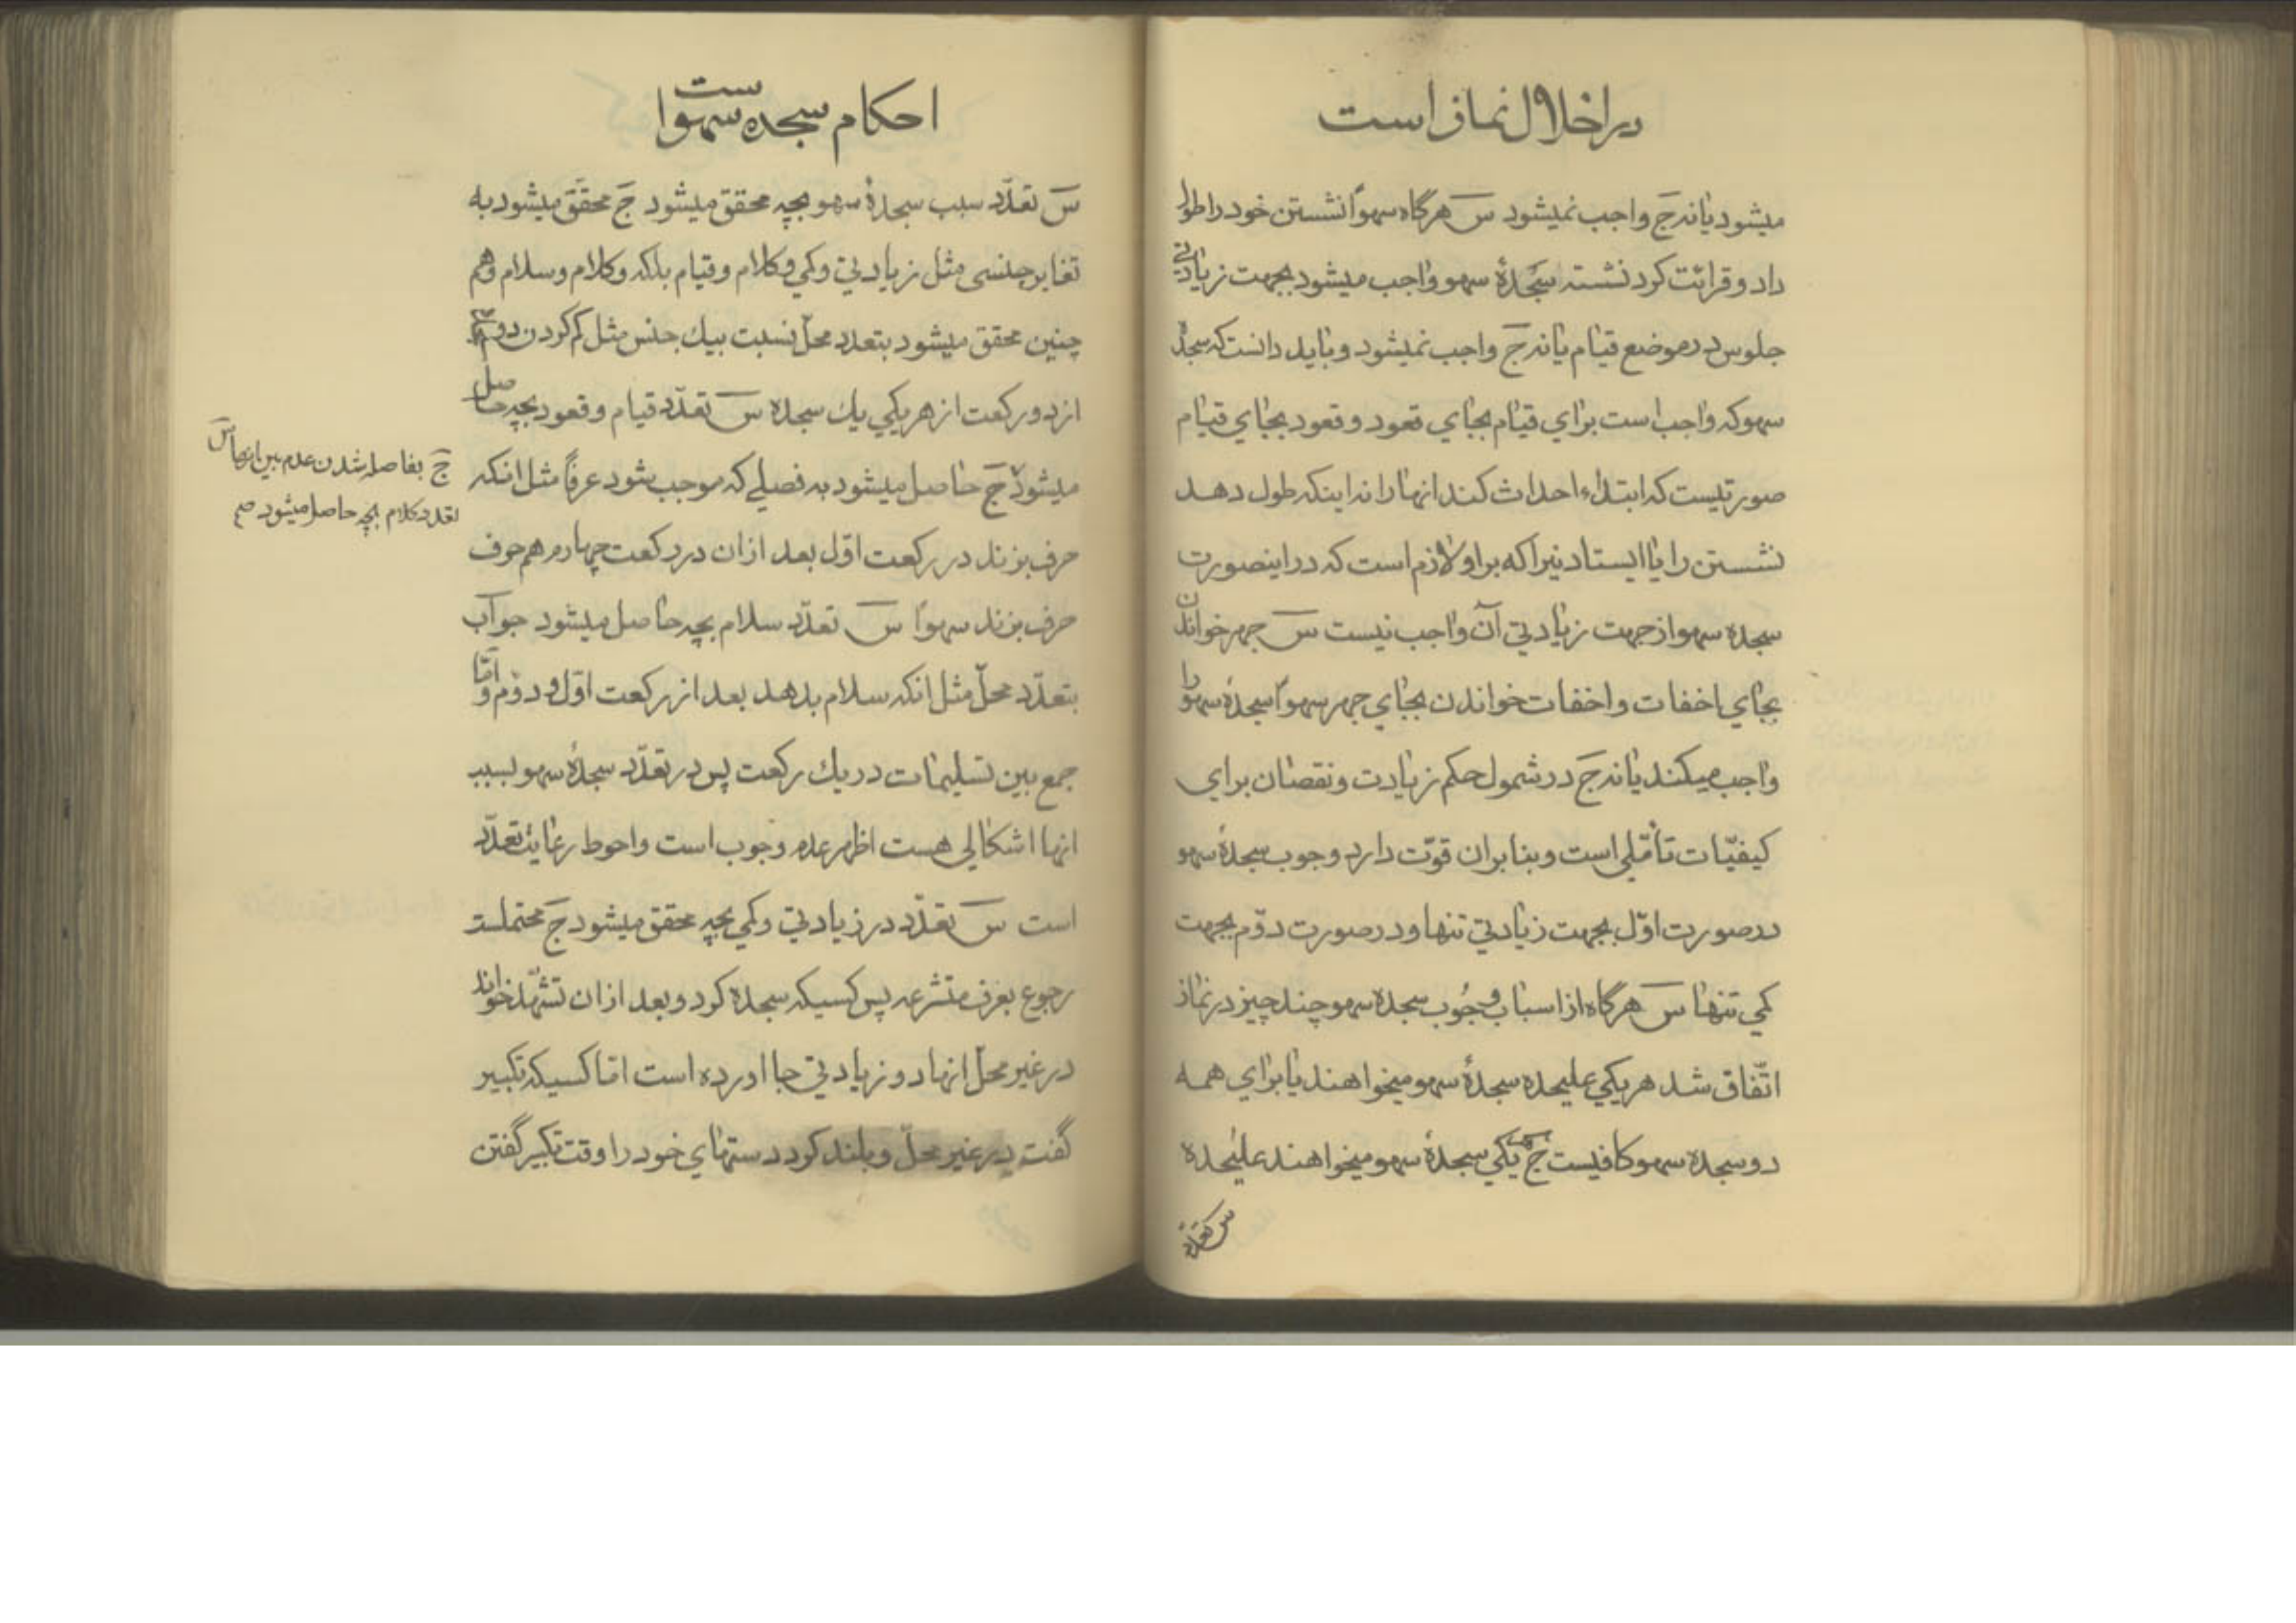 در اخلال نماز است
میشود یا نه جَ واجب نمیشود سَ هرگاه سهواً نشستن خود را طول
داد و قرائت کرد نشسته سجدهٔ سهو واجب میشود بجهت زیادتی
جلوس در موضع قیام یا نه جَ واجب نمیشود و باید دانست که سجدهٔ
سهو که واجب است برای قیام بجای قعود و قعود بجای قیام
صورتیست که ابتداء احداث کند انها را نه اینکه طول دهد
نشستن را یا ایستادنیرا که بر او لازم است که در اینصورت
سجده سهو از جهت زیادتی آن واجب نیست سَ جهر خواندن
بجای اخفات و اخفات خواندن بجای جهر سهواً سجدهٔ سهو را
واجب میکند یا نه جَ در شمول حکم زیادت و نقصان برای
کیفیّات تأمّلی است و بنابران قوّت دارد وجوب سجدهٔ سهو
در صورت اوّل بجهت زیادتی تنها و در صورت دوّم بجهت
کمی تنها سَ هرگاه از اسباب وجُوب سجدهٔ سهو چند چیز در نماز
اتّفاق شد هر یکی علیحده سجدهٔ سهو میخواهند یا برای همه
دو سجده سهو کافیست جَ هر یکی سجدهٔ سهو میخواهند علیٰحده
س تعدّد
احکام سجده سهو است
سَ تعدّد سبب سجدهٔ سهو بچه محقق میشود جَ محقّق میشود به
تغایر جنسی مثل زیادتی و کمی و کلام و قیام بلکه و کلام و سلام و هم
چنین محقق میشود بتعدد محلّ نسبت بیك جنس مثل کم کردن دو سجده
از دو رکعت از هر یکی یك سجده سَ تعدّد قیام و قعود بچه حاصل
میشود جَ حاصل میشود به فصلی که موجب شود عرفاً مثل انکه
حرف بزند در رکعت اوّل بعد ازان در رکعت چهارم هم حرف
حرف بزند سهواً سَ تعدّد سلام بچه حاصل میشود جواب
بتعدّد محلّ مثل انکه سلام بدهد بعد از رکعت اوّل و دوّم و امّا
جمع بین تسلیمات در یك رکعت پس در تعدّد سجدهٔ سهو بسبب
انها اشکالی هست اظهر عدم وجوب است و احوط رعایت تعدّد
است سَ تعدّد در زیادتی و کمی بچه محقق میشود جَ محتملست
رجوع بعرف متشرعه پس کسیکه سجده کرد و بعد ازان تشهّد خواند
در غیر محلّ انها دو زیادتی بجا اورده است امّا کسیکه تکبیر
گفت در غیر محلّ و بلند کرد دستهای خود را وقت تکبیر گفتن
جَ بفاصله شدن عدم بین انها سَ
تعدد کلام بچه حاصل میشود صح